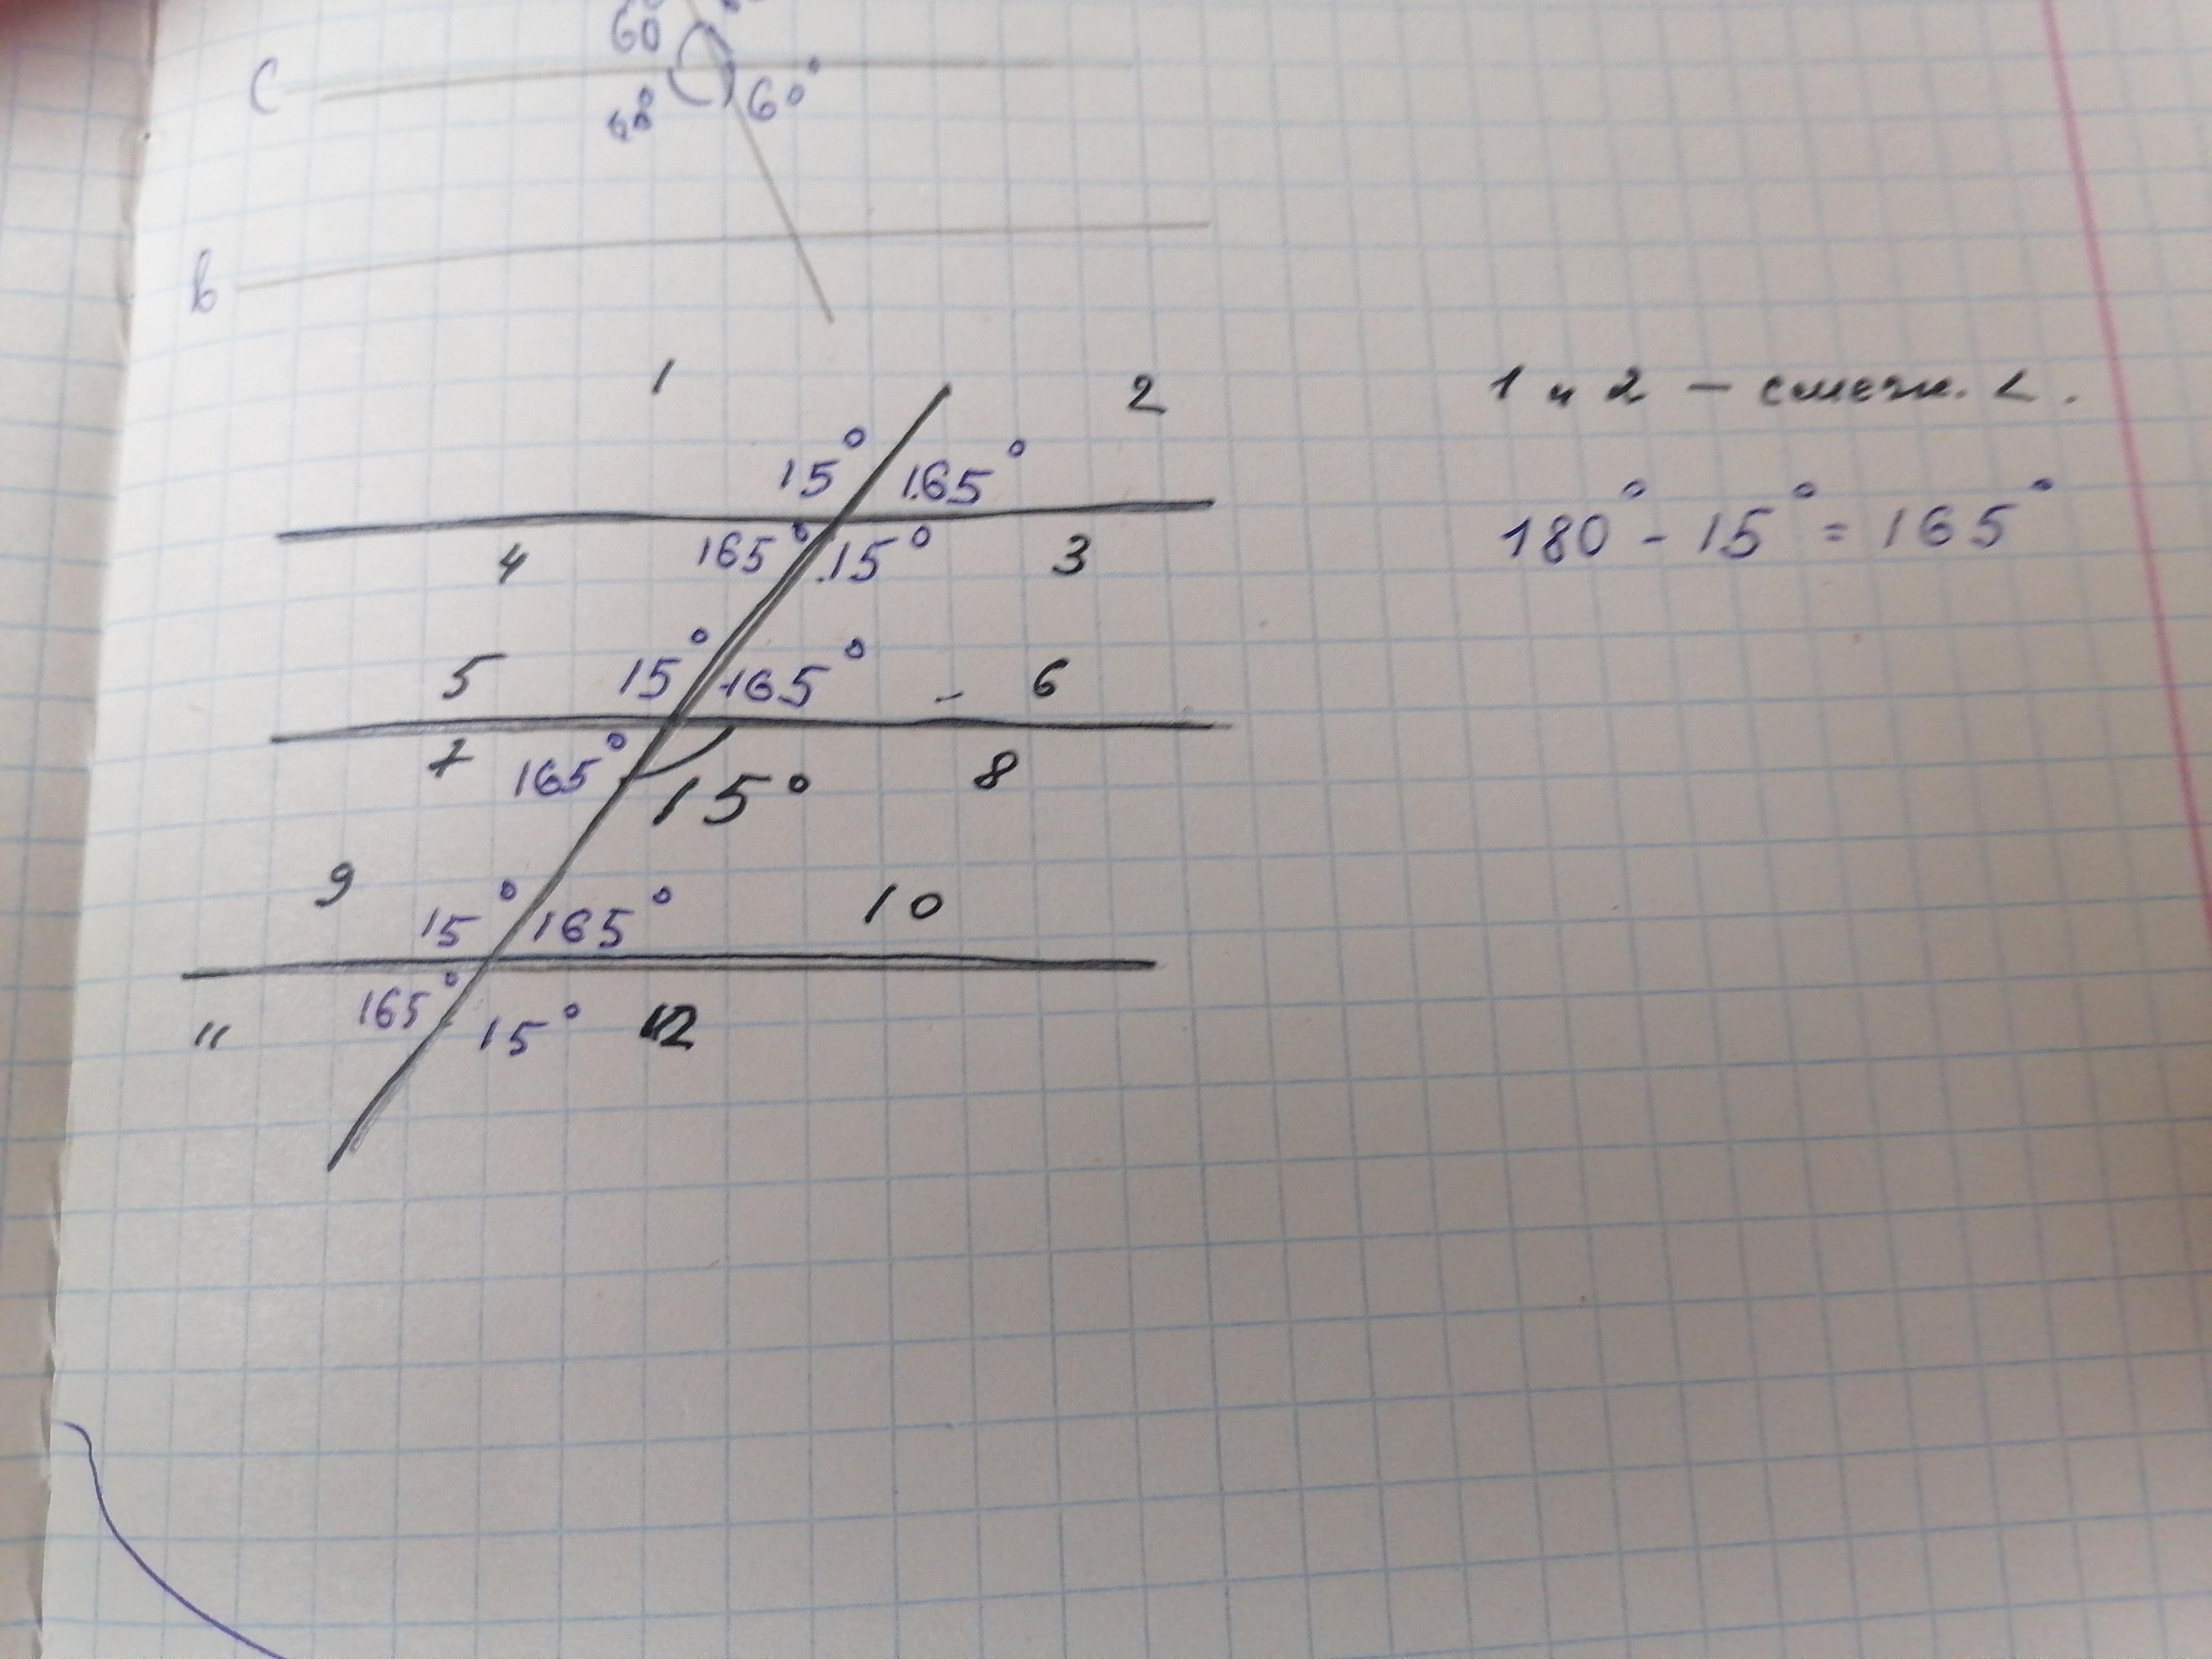 60
C
60° 60°
b
1 2
1 и 2 – смежн. ∠.
15° 165°
180° - 15° = 165°
4 165° 15° 3
5 15° 165° 6
7 165° 15° 8
9 15° 165° 10
11 165° 15° 12